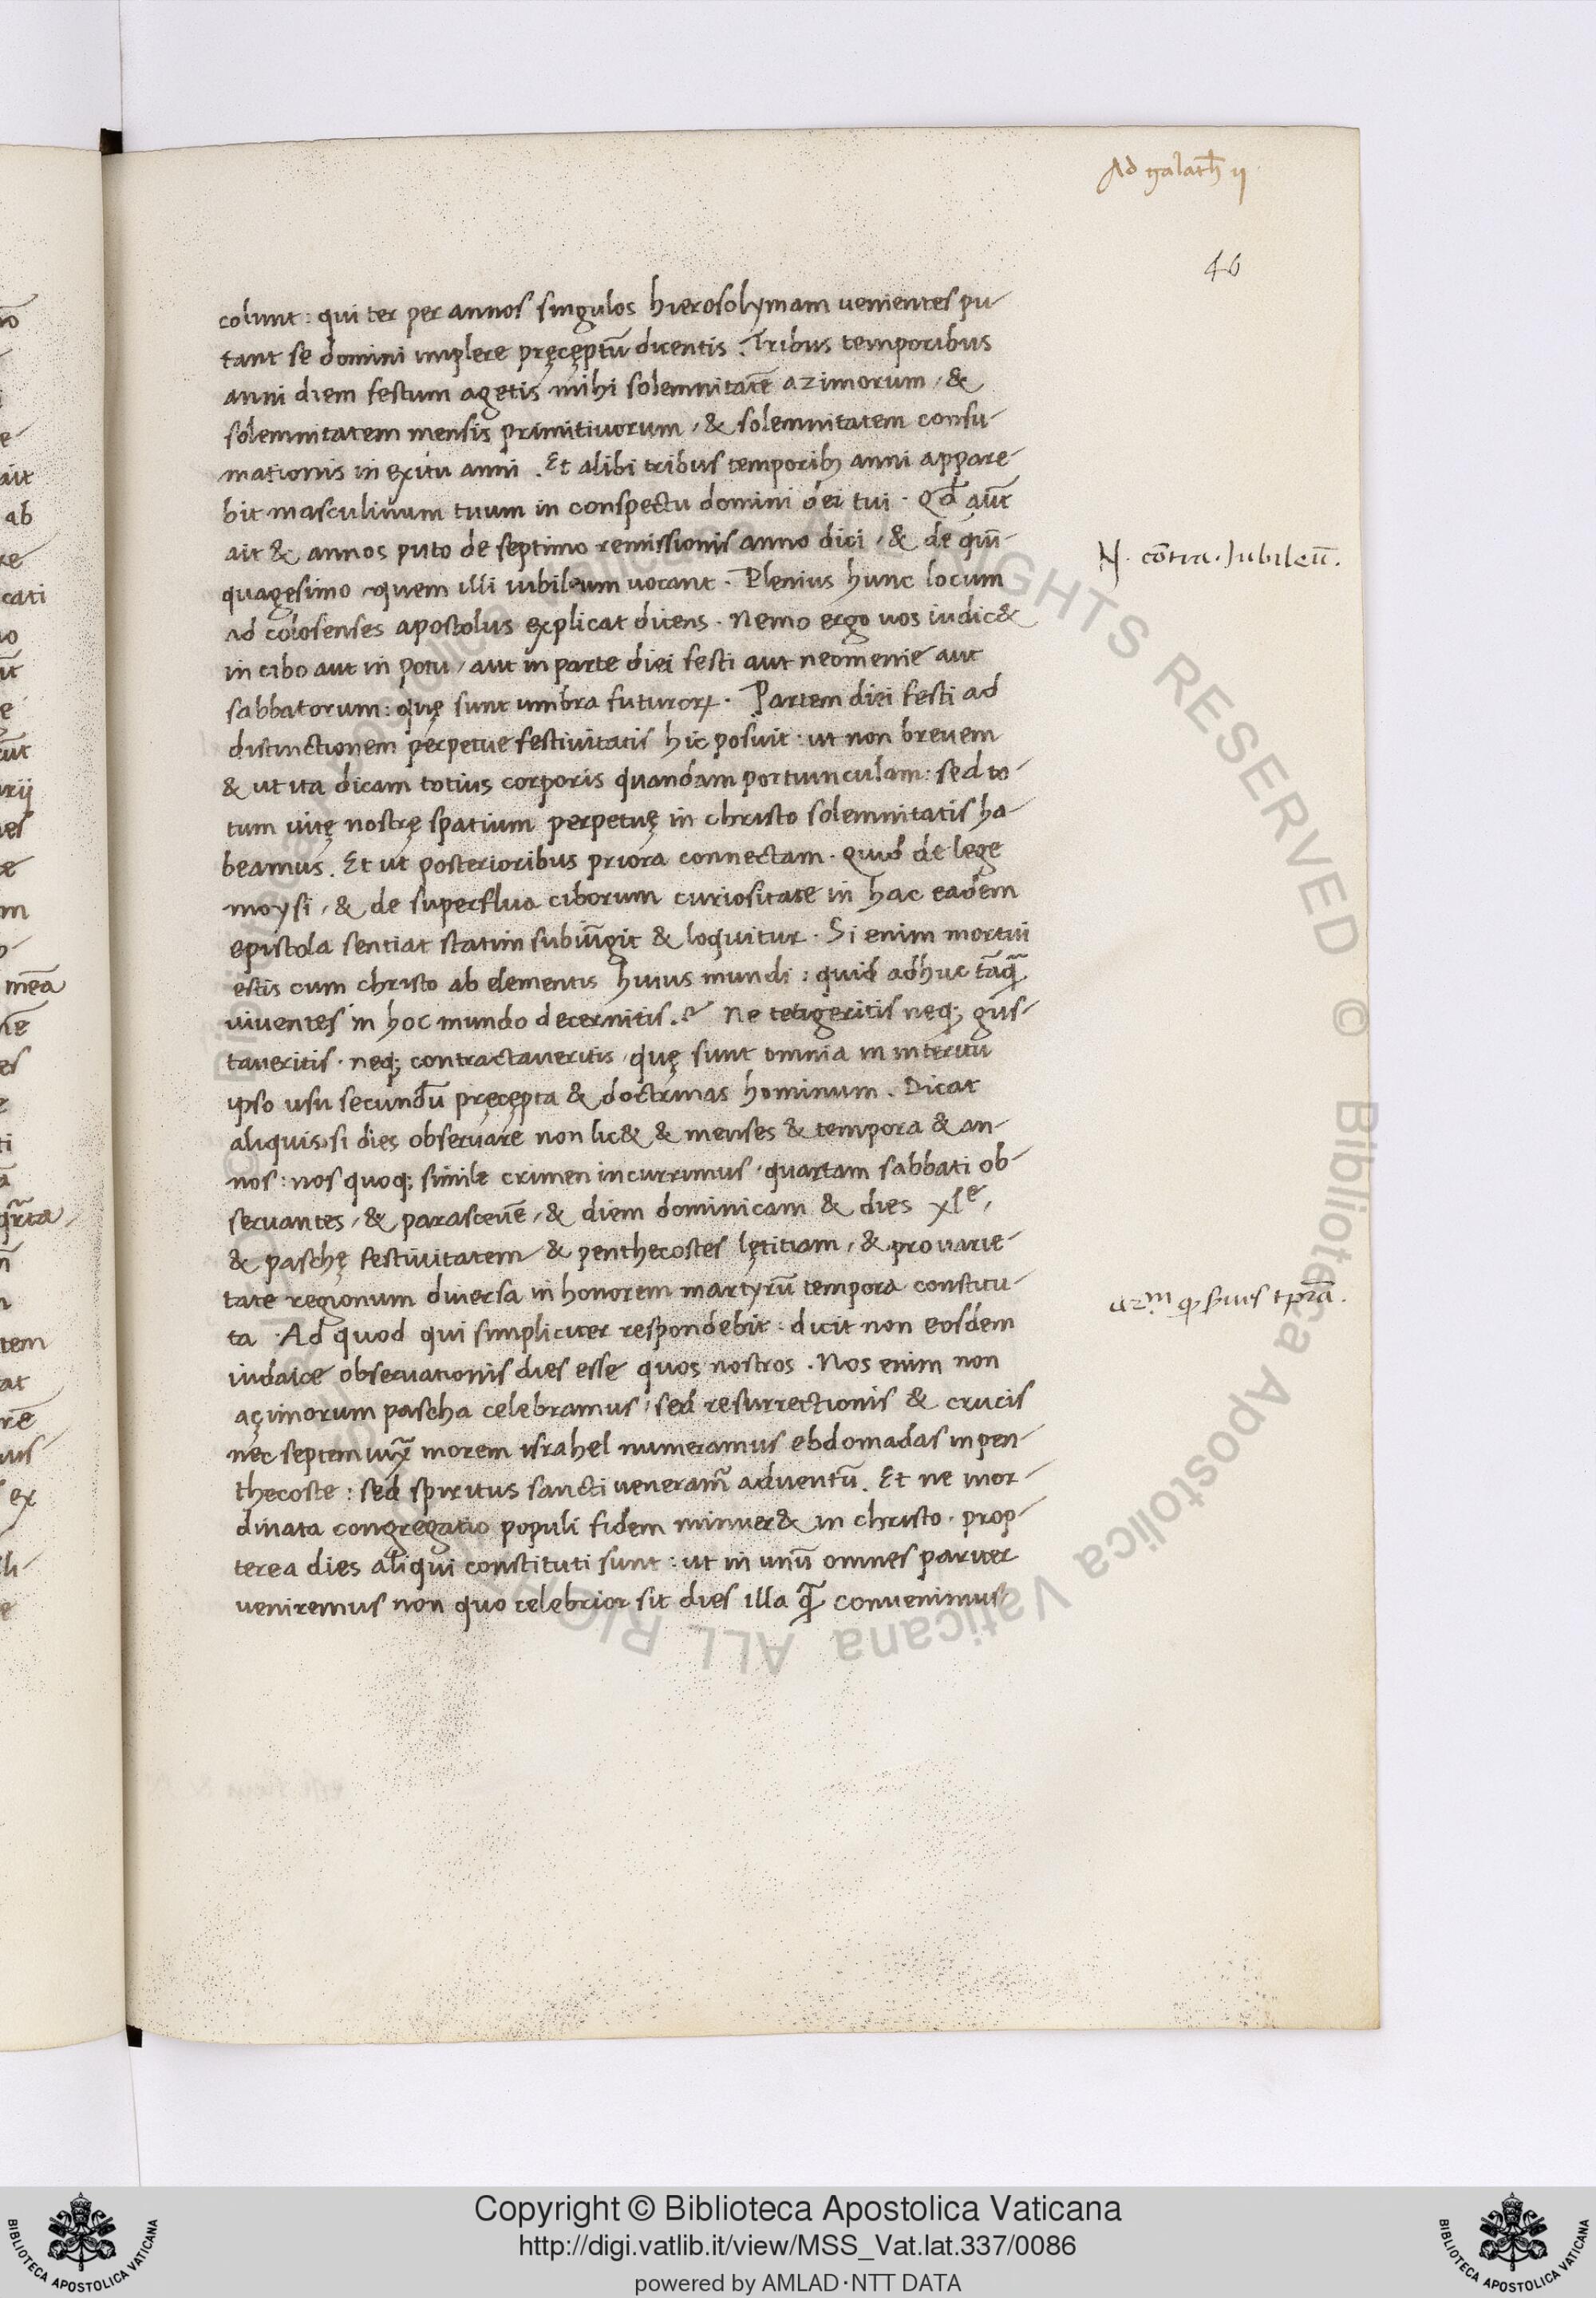 Ad galath ij
46
colunt: qui ter per annos singulos hierosolymam uenientes pu-
tant se domini implere pręcęptū dicentis. Tribus temporibus
anni diem festum agetis mihi solemnitatē azimorum, &
solemnitatem mensis primitiuorum, & solemnitatem consu-
mationis in exitu anni. Et alibi tribus temporibꝫ anni appare-
bit masculinum tuum in conspectu domini dei tui. Qđ aūt
ait & annos puto de septimo remissionis anno dici, & de quī-
quagesimo quem illi iubileum uocant. Plenius hunc locum
ad colosenses apostolus explicat dicens. Nemo ergo uos iudic&
in cibo aut in potu, aut in parte diei festi aut neomenie aut
sabbatorum: quę sunt umbra futuroꝝ. Partem diei festi ad
distinctionem perpetue festiuitatis hic posuit: ut non breuem
& ut ita dicam totius corporis quandam portiunculam: sed to-
tum uitę nostrę spatium perpetuę in christo solemnitatis ha-
beamus. Et ut posterioribus priora connectam. Quid de lege
moysi, & de superflua ciborum curiositate in hac eadem
epistola sentiat statim subiūgit & loquitur. Si enim mortui
estis cum christo ab elementis huius mundi: quid adhuc tāꝗ̄
uiuentes in hoc mundo decernitis.? Ne tetigeritis neqꝫ gus-
taueritis. neqꝫ contractaueritis, quę sunt omnia in interitu
ipso usu secundū pręcępta & doctrinas hominum. Dicat
aliquis, si dies obseruare non lic& & menses & tempora & an-
nos: nos quoqꝫ simile crimen incurrimus, quartam sabbati ob-
seruantes, & parasceuē, & diem dominicam & dies xlᵉ,
& paschę festiuitatem & penthecostes lętitiam, & pro uarie-
tate regionum diuersa in honorem martyrū tempora constitu-
ta. Ad quod qui simpliciter respondebit: dicit non eosdem
iudaice obseruationis dies esse quos nostros. Nos enim non
açimorum pascha celebramus, sed resurrectionis & crucis
nec septem iuxͣ morem israhel numeramus ebdomadas in pen-
thecoste: sed spiritus sancti ueneram̃ aduentū. Et ne inor-
dinata congregatio populi fidem minuer& in christo. prop-
terea dies aliqui constituti sunt: ut in unū omnes pariter
ueniremus non quo celebrior sit dies illa ꝗ̄ conuenimus
N. cōtra. Jubileū.